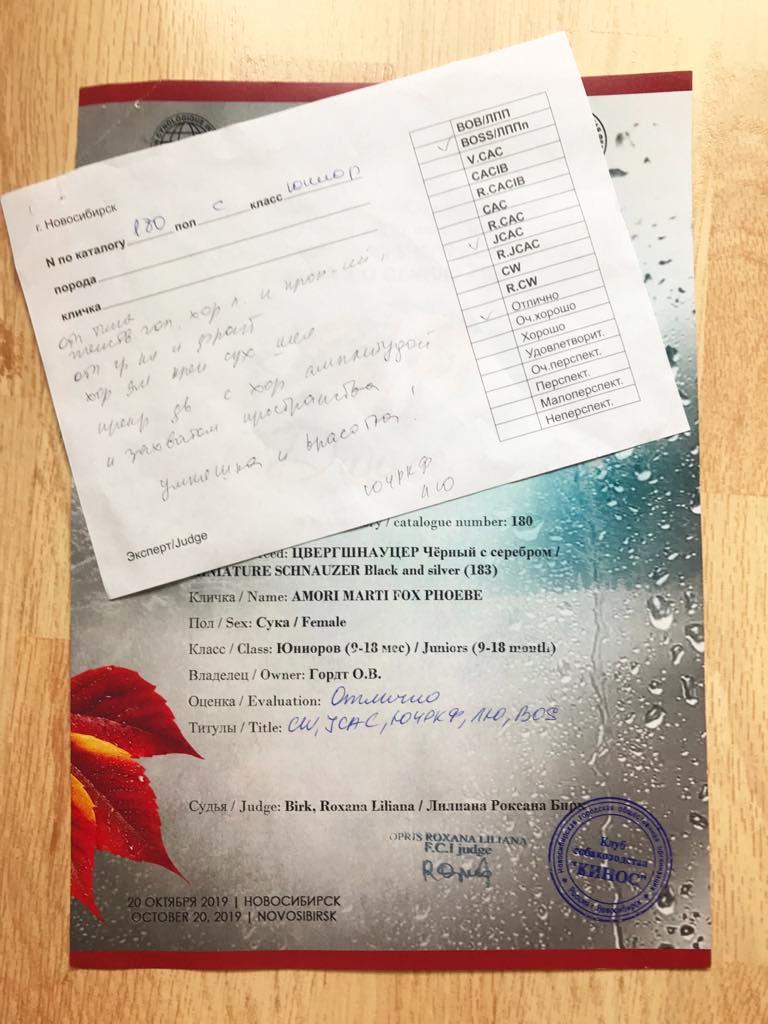 г. Новосибирск
N по каталогу 180 пол с класс юниор
порода
кличка
от типа
женств гол. хор л. и проп-лей,
от гр кл и фронт
хор лин креп сух шея
прекр дв с хор амплитудой
и захватом пространства
умняшка и красотка!
ЮЧРКФ
ЛЮ
Эксперт/Judge
BOB/ЛПП
BOSS/ЛППп
V.CAC
CACIB
R.CACIB
CAC
R.CAC
JCAC
R.JCAC
CW
R.CW
Отлично
Оч.хорошо
Хорошо
Удовлетворит.
Оч.перспект.
Перспект.
Малоперспект.
Неперспект.
/ catalogue number: 180
ЦВЕРГШНАУЦЕР Чёрный с серебром /
SCHNAUZER Black and silver (183)
Кличка / Name: AMORI MARTI FOX PHOEBE
Пол / Sex: Сука / Female
Класс / Class: Юниоров (9-18 мес) / Juniors (9-18 month)
Владелец / Owner: Гордт О.В.
Оценка / Evaluation: Отлично
Титулы / Title: CW, JCAC, ЮЧРКФ, ЛЮ, BOS
Судья / Judge: Birk, Roxana Liliana / Лилиана Роксана Бирк
OPRIS ROXANA LILIANA
F.C.I judge
Клуб
собаководства
"КИНОС"
20 ОКТЯБРЯ 2019 | НОВОСИБИРСК
OCTOBER 20, 2019 | NOVOSIBIRSK